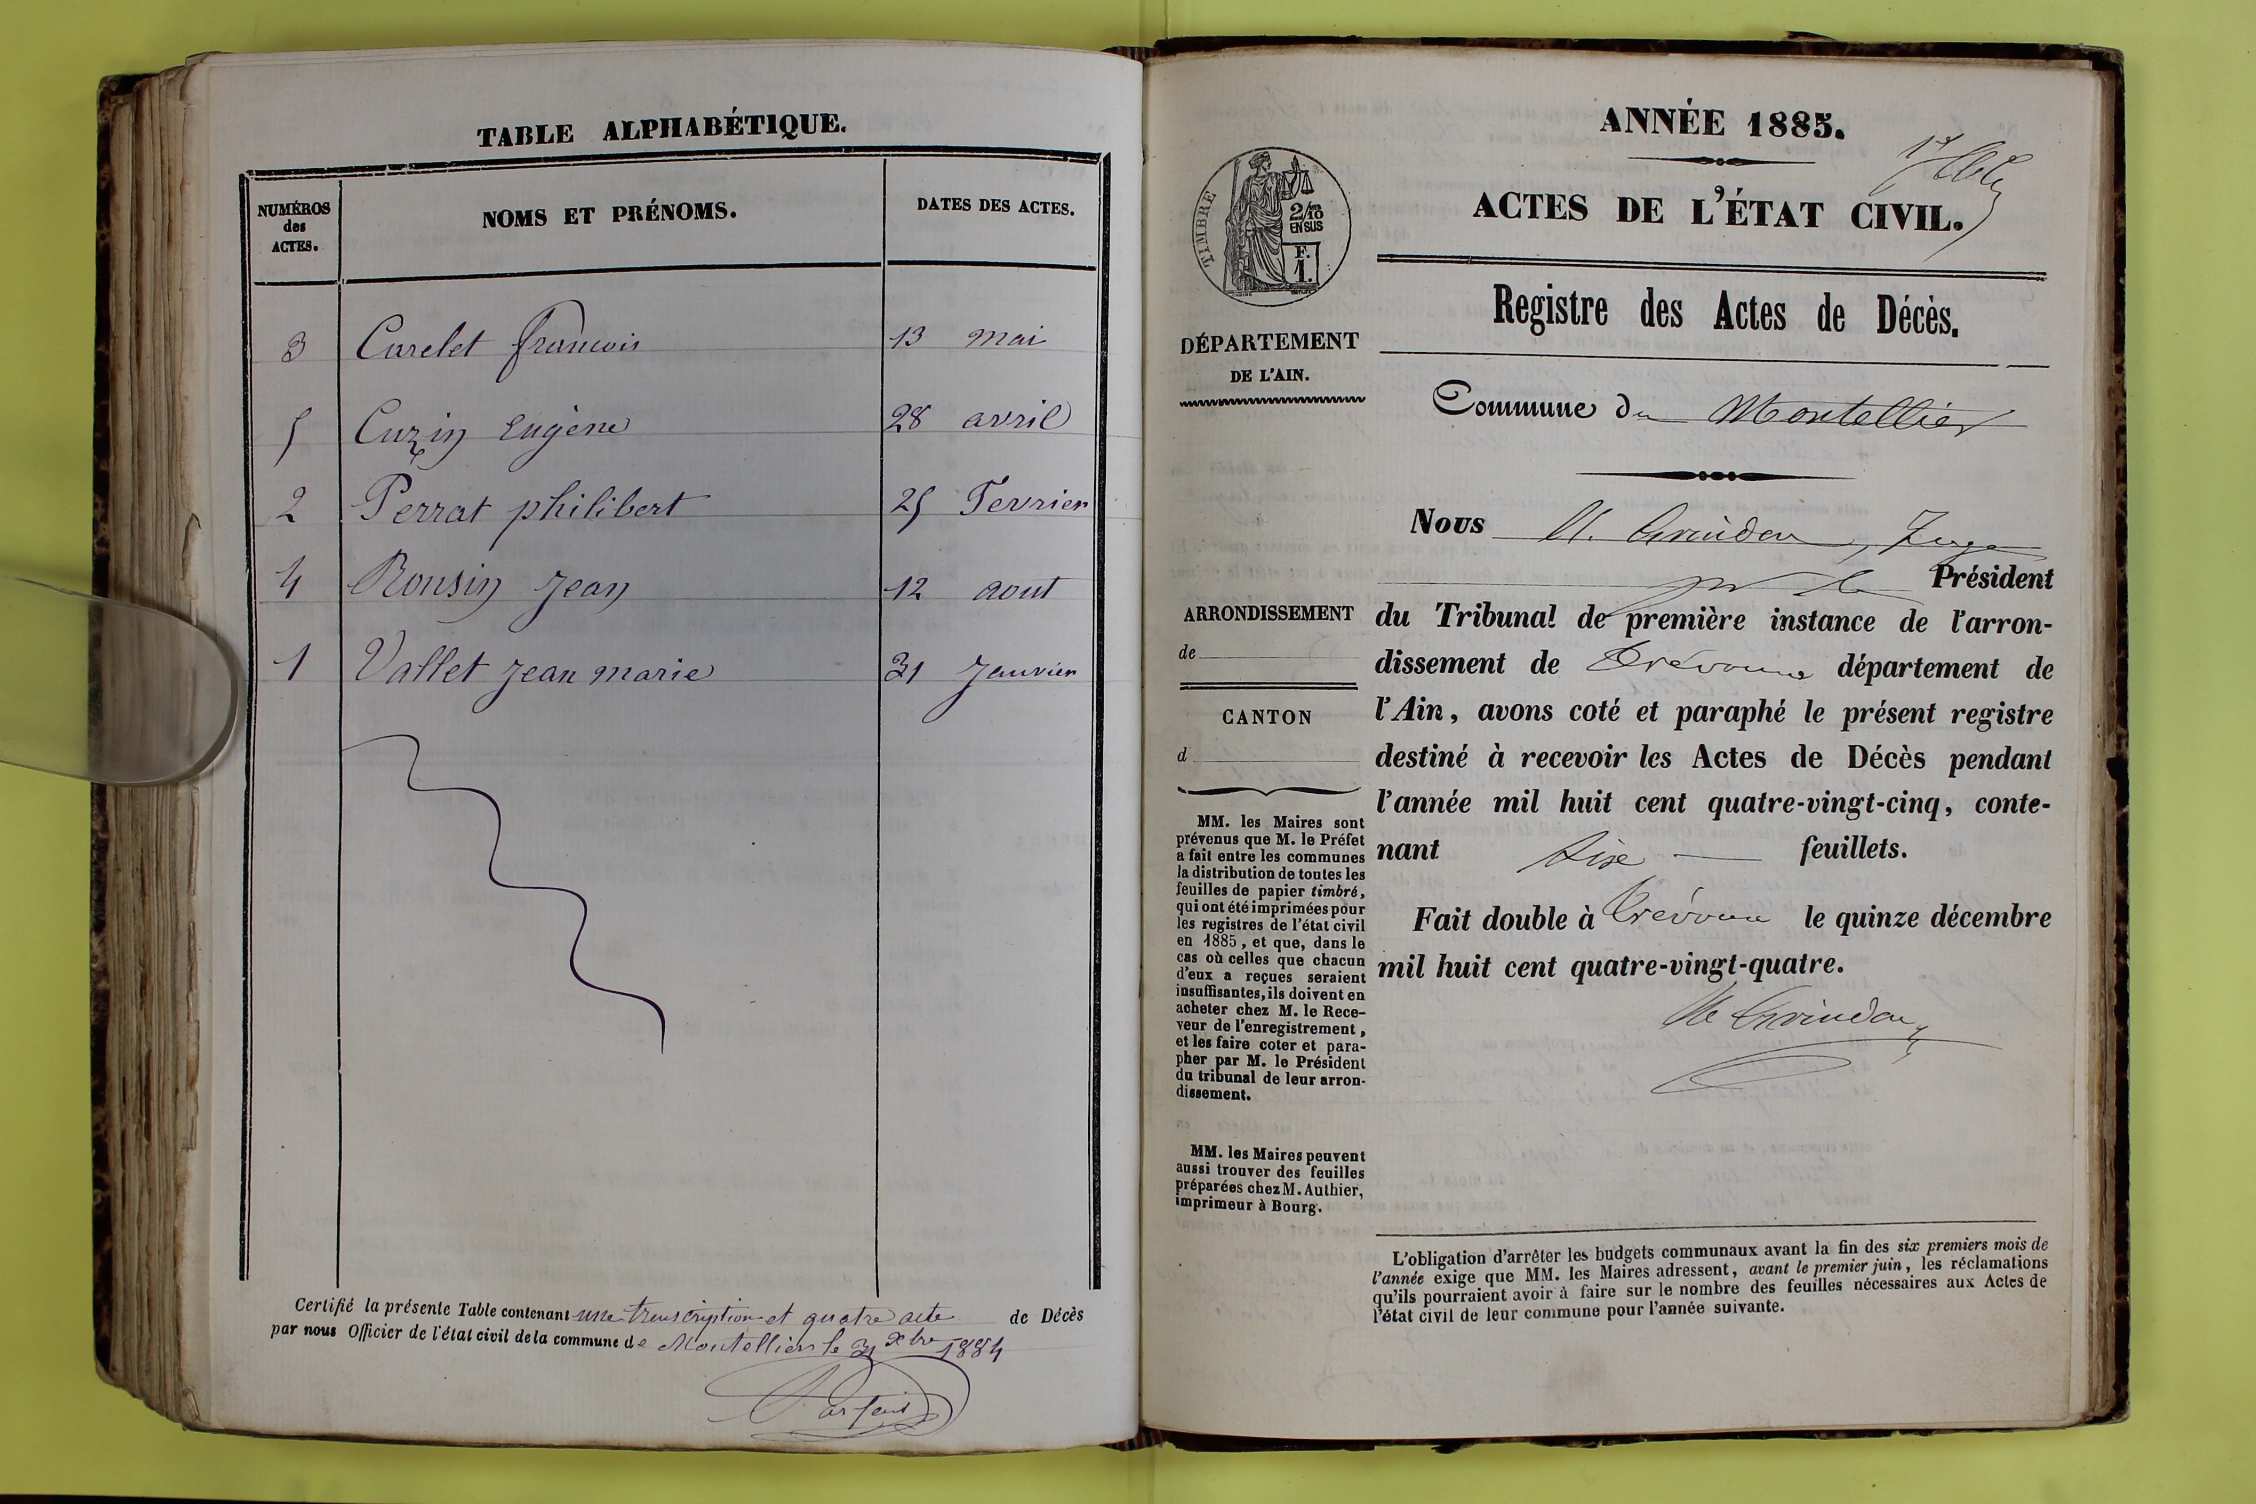 TABLE ALPHABÉTIQUE.
NUMÉROS des ACTES.
NOMS ET PRÉNOMS.
DATES DES ACTES.
3 Carelet francois 13 mai
5 Cuzin Eugène 28 avril
2 Perrat philibert 25 Fevrier
4 Rousin jean 12 aout
1 Vallet jean marie 31 Janvier
Certifié la présente Table contenant une transcription et quatre acte de Décès
par nous Officier de l'état civil de la commune de Montelliers le 31 xbre 1884
ANNÉE 1885.
ACTES DE L'ÉTAT CIVIL.
TIMBRE
2/10
EN SUS
F.
1.
DÉPARTEMENT
DE L'AIN.
ARRONDISSEMENT
de
CANTON
d
MM. les Maires sont
prévenus que M. le Préfet
a fait entre les communes
la distribution de toutes les
feuilles de papier timbré,
qui ont été imprimées pour
les registres de l'état civil
en 1885, et que, dans le
cas où celles que chacun
d'eux a reçues seraient
insuffisantes, ils doivent en
acheter chez M. le Rece-
veur de l'enregistrement,
et les faire coter et para-
pher par M. le Président
du tribunal de leur arron-
dissement.
MM. les Maires peuvent
aussi trouver des feuilles
préparées chez M. Authier,
imprimeur à Bourg.
Registre des Actes de Décès.
Commune du Montellier
Nous Juge
Président
du Tribunal de première instance de l'arron-
dissement de Trévoux département de
l'Ain, avons coté et paraphé le présent registre
destiné à recevoir les Actes de Décès pendant
l'année mil huit cent quatre-vingt-cinq, conte-
nant six feuillets.
Fait double à Trévoux le quinze décembre
mil huit cent quatre-vingt-quatre.
L'obligation d'arrêter les budgets communaux avant la fin des six premiers mois de
l'année exige que MM. les Maires adressent, avant le premier juin, les réclamations
qu'ils pourraient avoir à faire sur le nombre des feuilles nécessaires aux Actes de
l'état civil de leur commune pour l'année suivante.